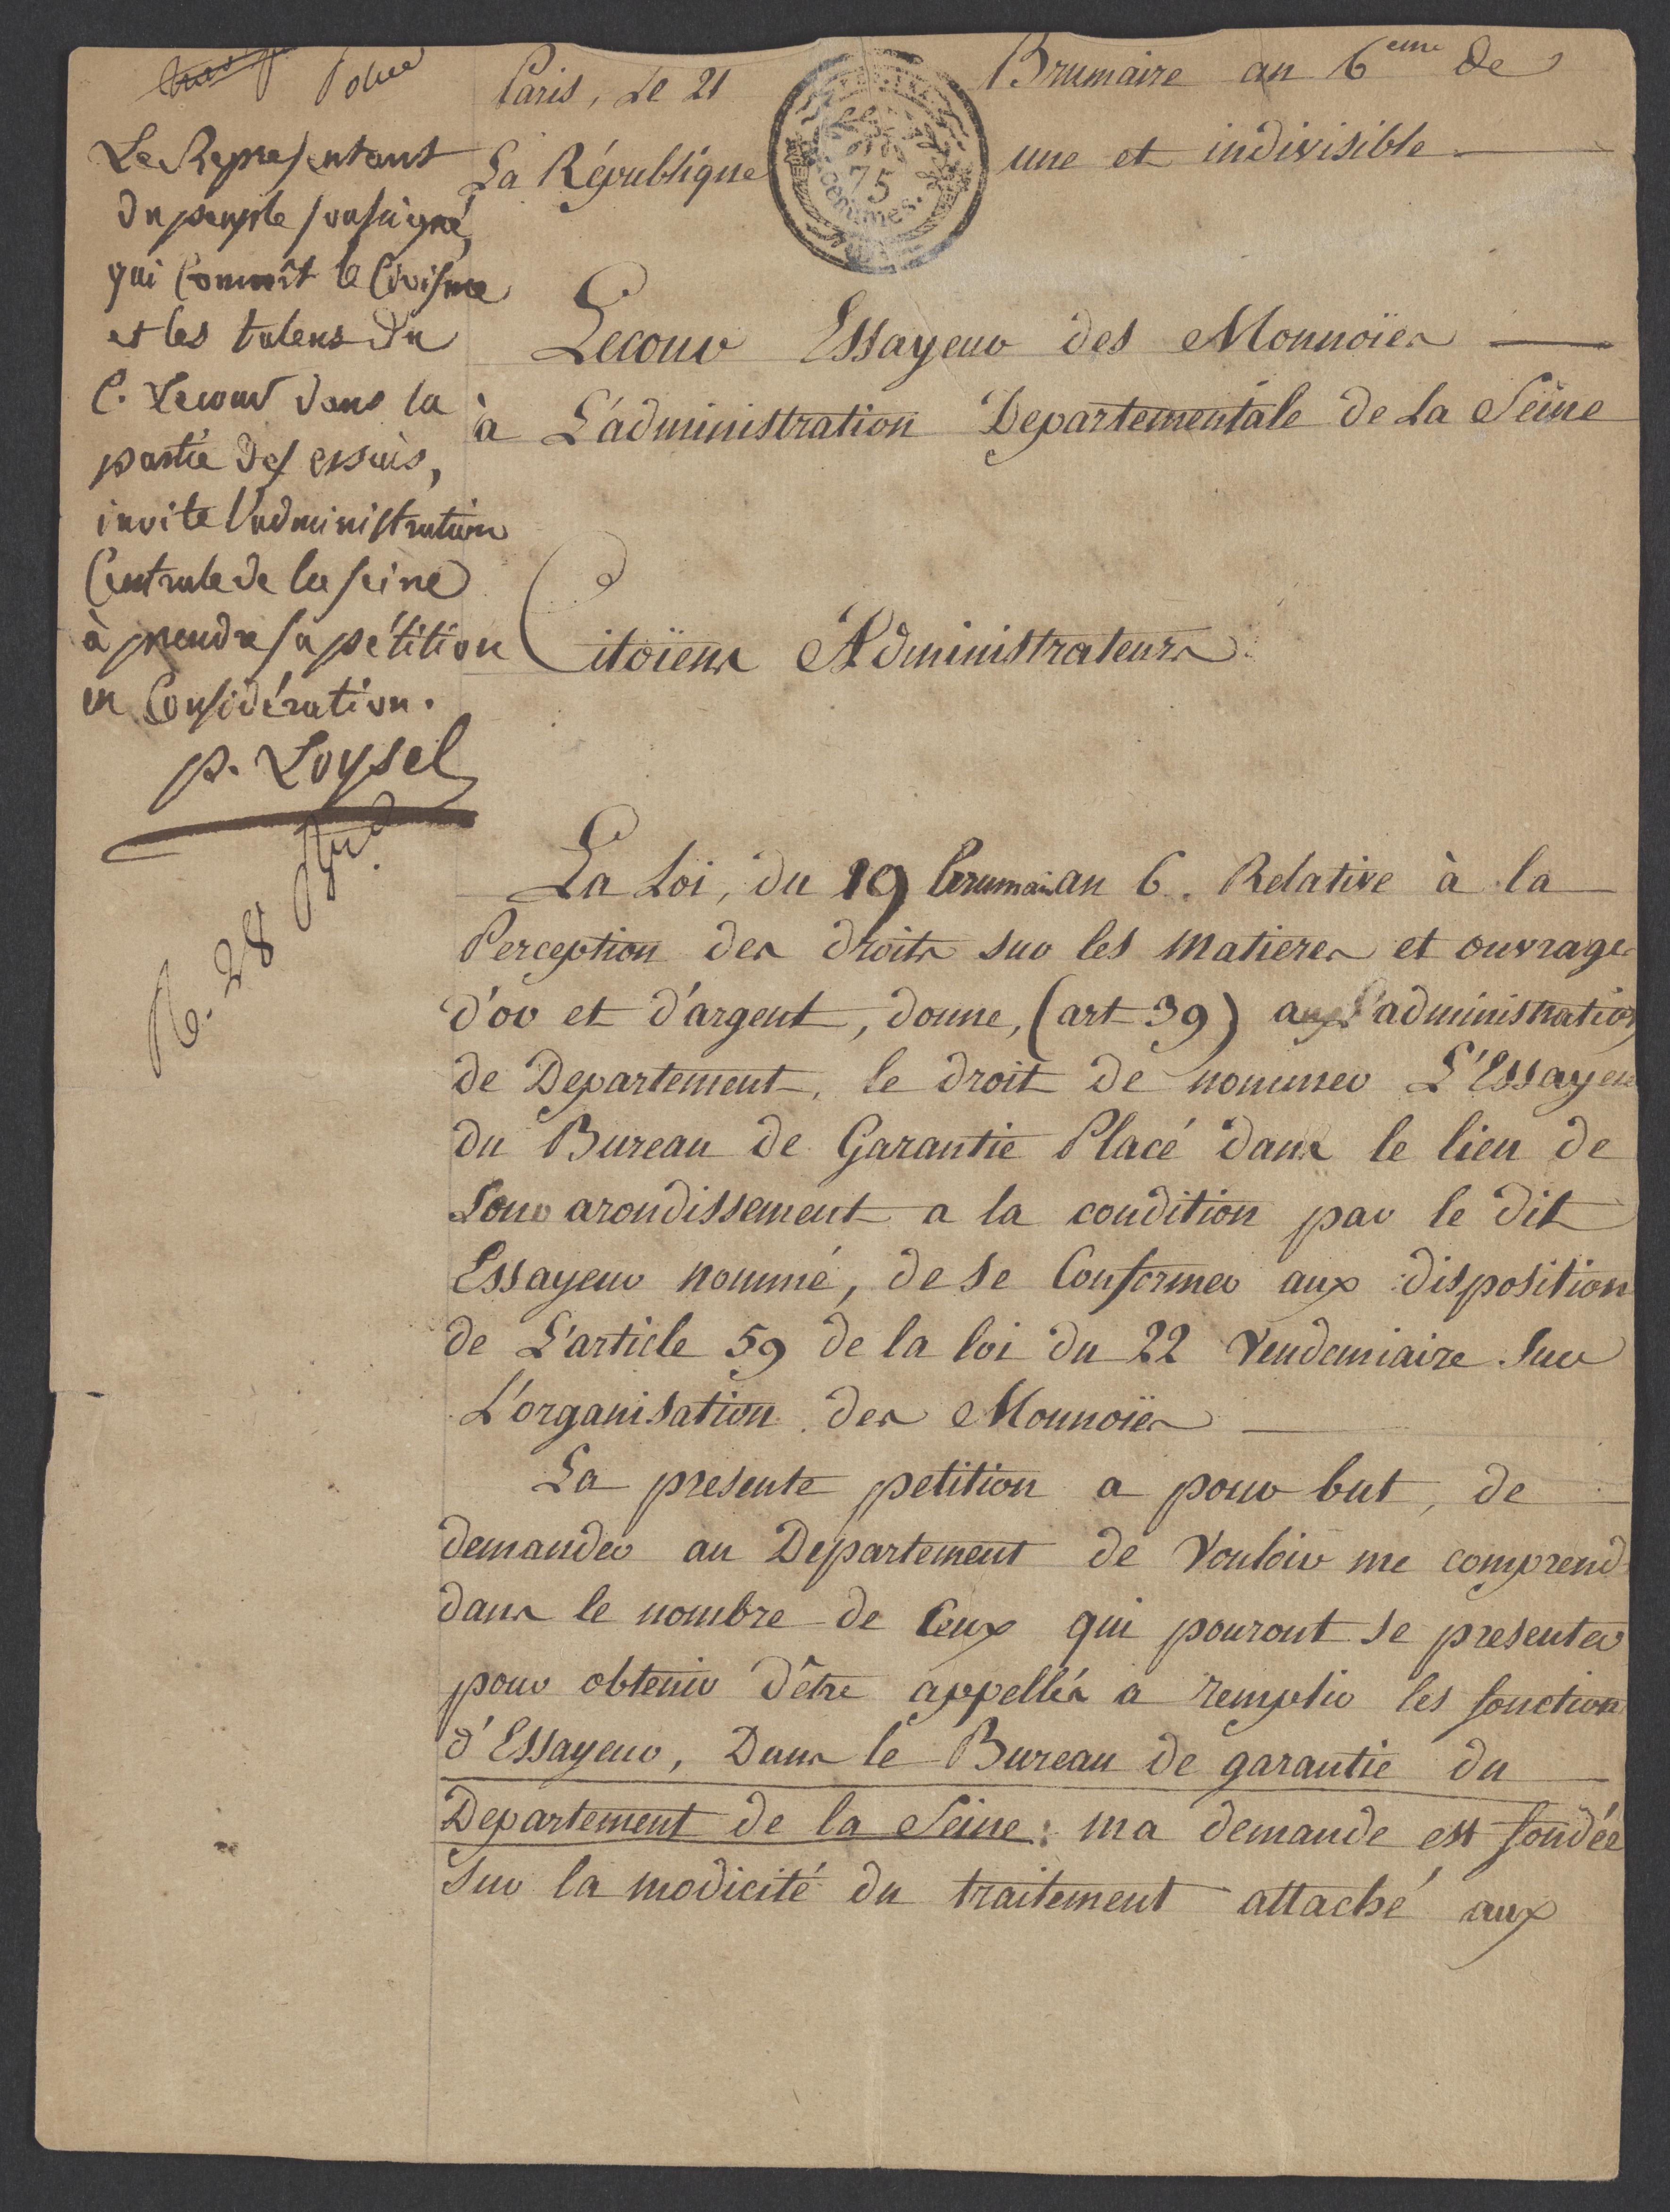 Paris, Le 21 Brumaire an 6eme de
La République une et indivisible
75
centimes.
Lecour Essayeur des Monnoïes
à L'administration Departementale de La Seine
Citoïens Administrateurs
Le Représentant
du peuple soussigné,
qui Connoît le Civisme
et les talens du
C. Lecour dans la
partie des essais,
invite l'administration
Centrale de la seine
à prendre sa pétition
en Considération.
p. Loysel
R. 28
La Loi, du 19 brumai an 6. Relative à la
Perception des droits sur les Matieres et ouvrages
d'or et d'argent, donne, (art 39) a l'administration
de Departement, le droit de nommer L'Essayeur
du Bureau de Garantie Placé dans le lieu de
Son arondissement a la condition par le dit
Essayeur nommé, de se Conformer aux disposition
de L'article 59 de la loi du 22 Vendemiaire Sur
L'organisation des Monnoïes
La presente petition a pour but, de
demander au Departement de Vouloir me comprend
dans le nombre de Ceux qui pouront se presenter
pour obtenir d'être appellés a remplir les fonction
d'Essayeur, Dans le Bureau de garantie du
Departement de la Seine : ma demande est fondée
Sur la modicité du traitement attaché aux